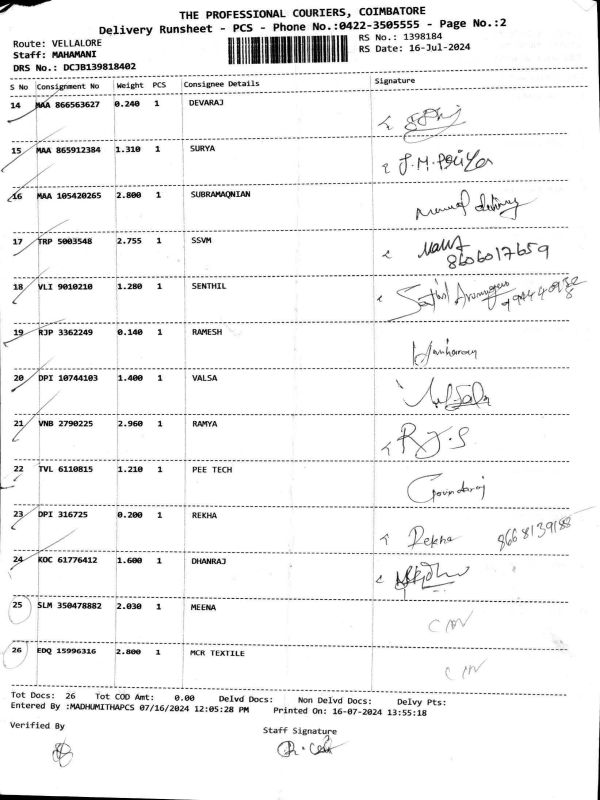 THE PROFESSIONAL COURIERS, COIMBATORE
Delivery Runsheet - PCS - Phone No.:0422-3505555 - Page No.:2
Route: VELLALORE
RS No.: 1398184
Staff: MAHAMANI
RS Date: 16-Jul-2024
DRS No.: DCJB139818402
S No Consignment No Weight PCS Consignee Details Signature
14 MAA 866563627 0.240 1 DEVARAJ
15 MAA 865912384 1.310 1 SURYA J.M.Priya
16 MAA 105420265 2.800 1 SUBRAMAQNIAN
17 TRP 5003548 2.755 1 SSVM
8606017659
18 VLI 9010210 1.280 1 SENTHIL
19 RJP 3362249 0.140 1 RAMESH
20 DPI 10744103 1.400 1 VALSA
21 VNB 2790225 2.960 1 RAMYA R.J.S
22 TVL 6110815 1.210 1 PEE TECH
23 DPI 316725 0.200 1 REKHA Rekha 8668139188
24 KOC 61776412 1.600 1 DHANRAJ
25 SLM 350478882 2.030 1 MEENA
26 EDQ 15996316 2.800 1 MCR TEXTILE
Tot Docs: 26 Tot COD Amt: 0.00 Delvd Docs: Non Delvd Docs: Delvy Pts:
Entered By :MADHUMITHAPCS 07/16/2024 12:05:28 PM Printed On: 16-07-2024 13:55:18
Verified By
Staff Signature